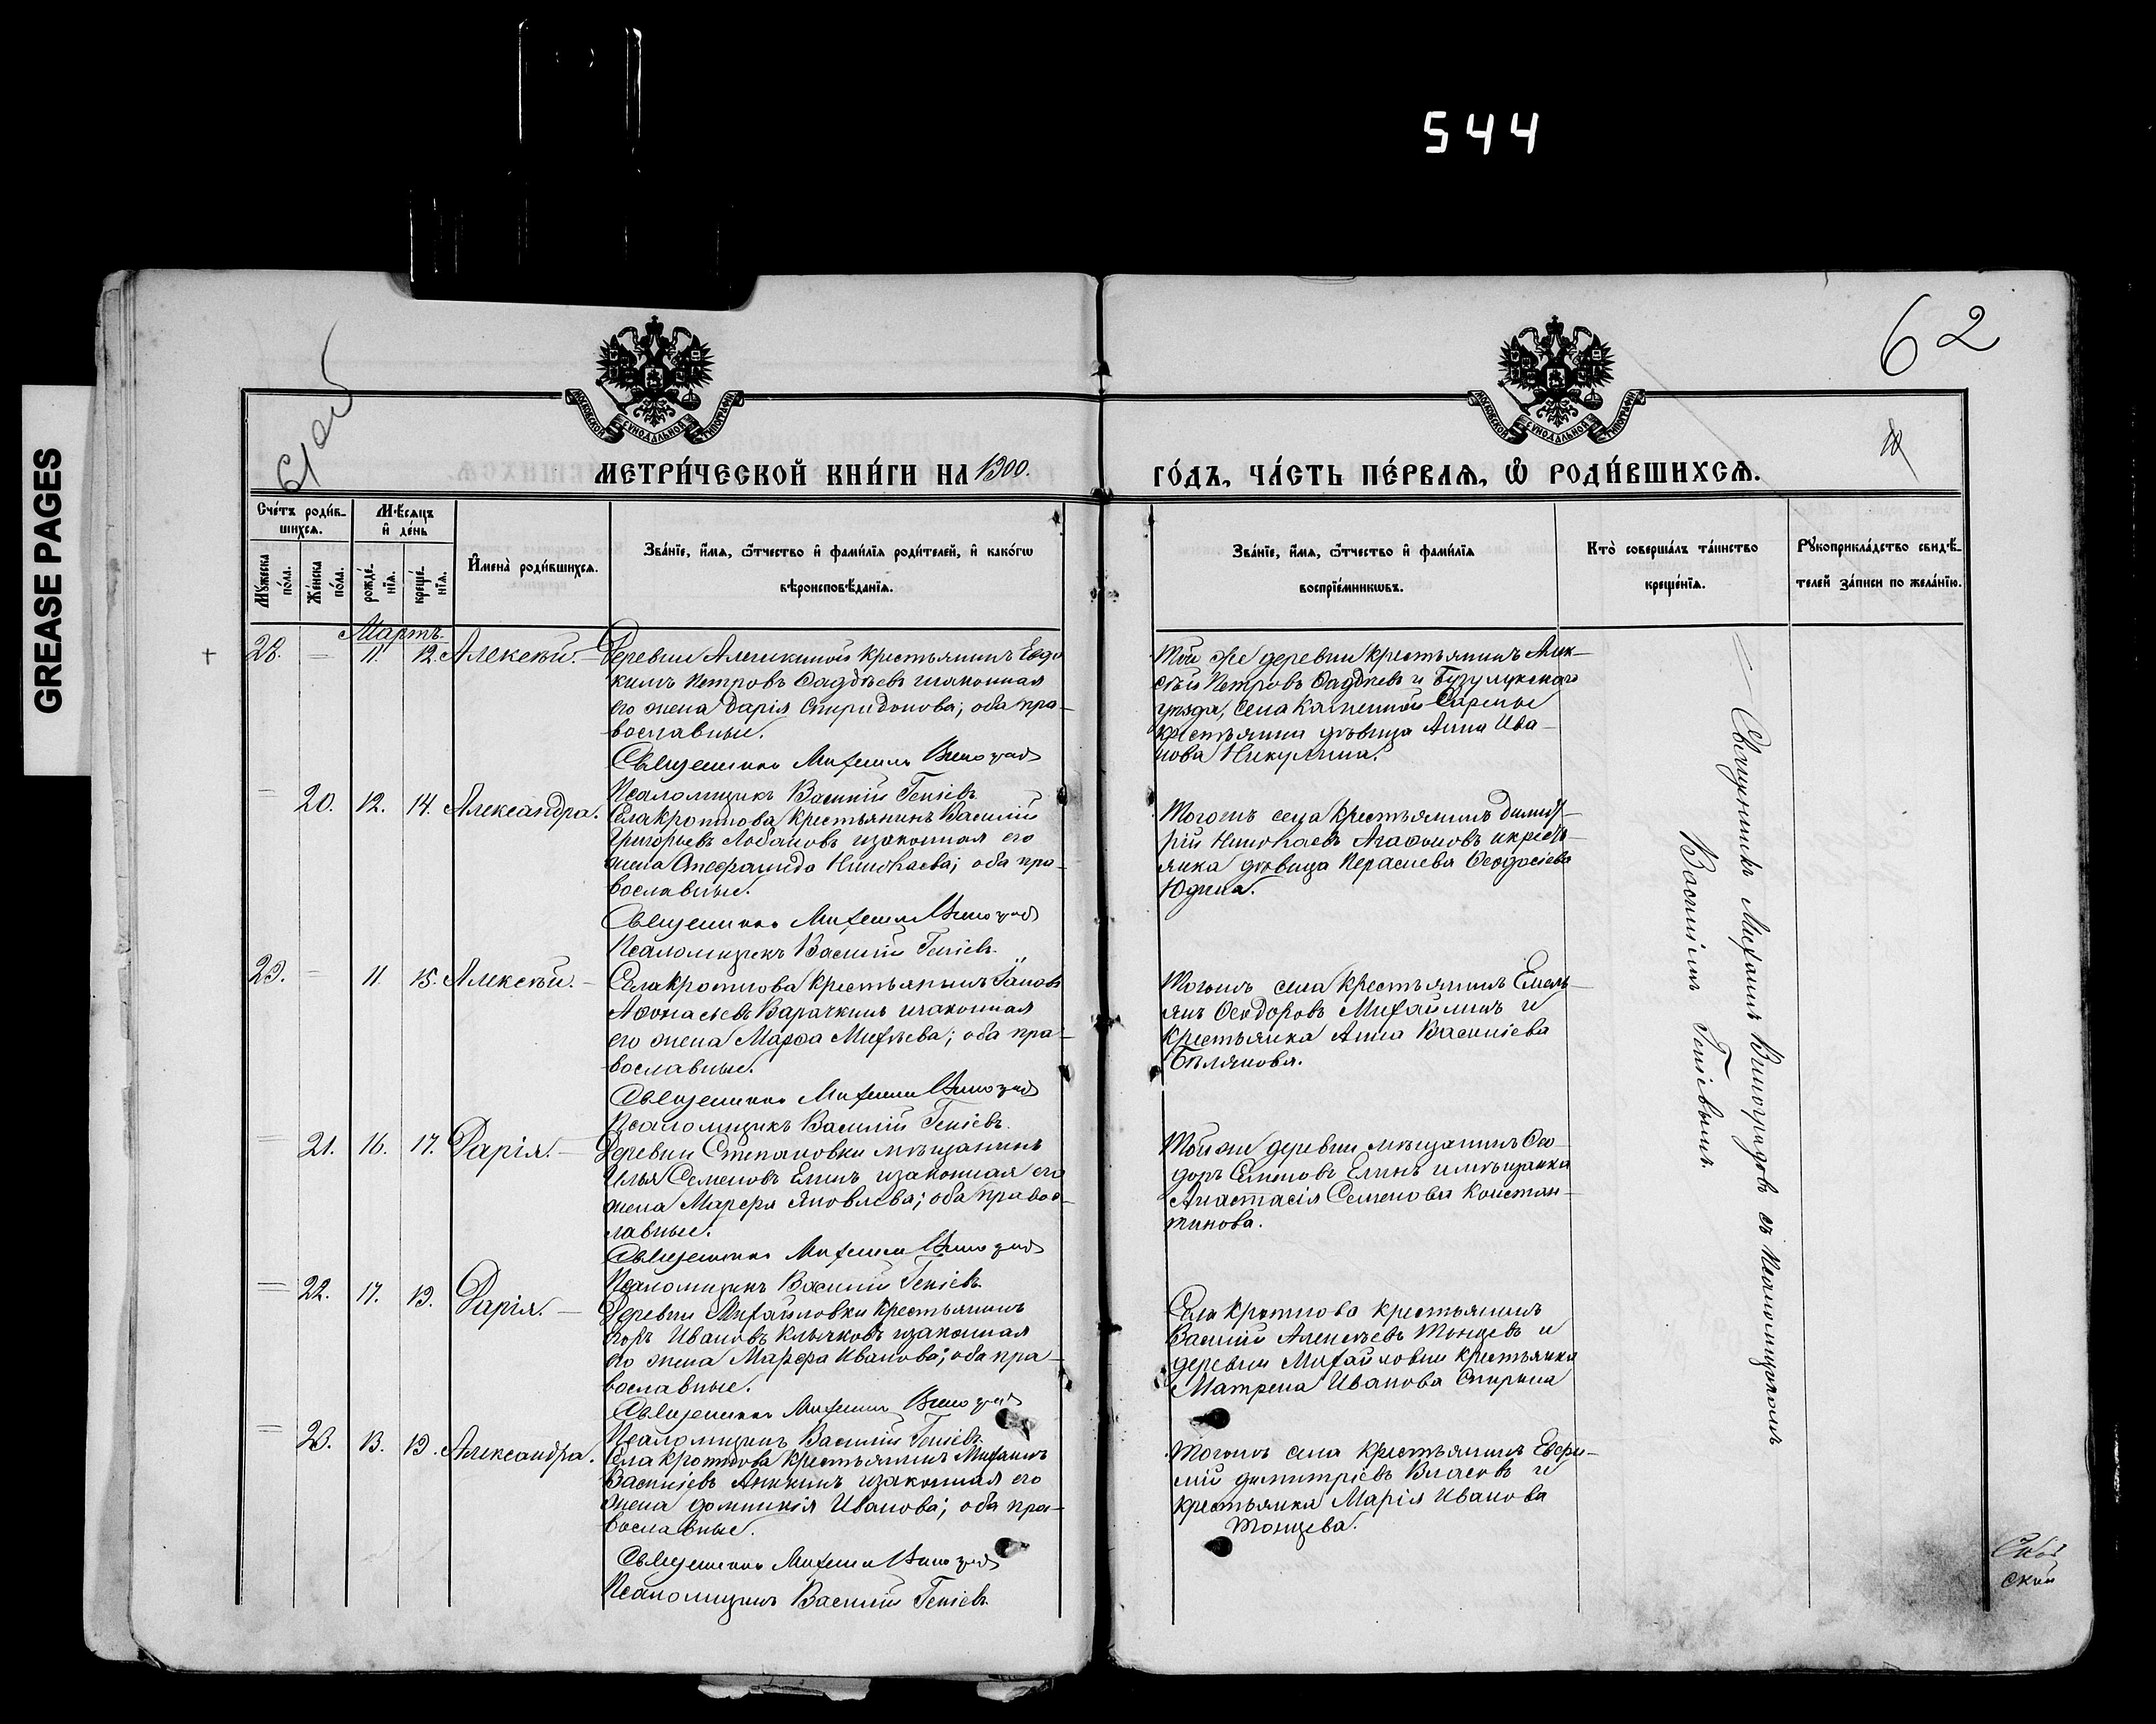 544
GREASE PAGES
62
МЕТРИ́ЧЕСКОЙ КНИ́ГИ НА 1900.
ГО́ДЪ, ЧА́СТЬ ПЕ́РВАЯ, Ѽ РОДИ́ВШИХСѦ.
Сче́тъ роди́в-
шихсѧ.
Мѣ́сяцъ
и҆ де́нь
Мꙋ́жеска
по́ла.
Же́нска
по́ла.
рожде́-
нїѧ.
креще́-
нїѧ.
И҆мена̀ роди́вшихсѧ.
Зва́нїе, и҆́мѧ, ѻ҆́тчество и҆ фами́лїѧ роди́телей, и҆ како́гѡ
вѣроисповѣ́данїѧ.
Зва́нїе, и҆́мѧ, ѻ҆́тчество и҆ фами́лїѧ
воспрїе́мникѡвъ.
Кто̀ соверша́лъ та́инство
креще́нїѧ.
Рꙋкоприкла́дство свидѣ́-
телей за́писи по жела́нїю.
Мартъ.
28. — 11. 12. Алексѣй. — Деревни Алешкиной крестьянинъ Евдо
кимъ Петровъ Фаддѣевъ и законная
его жена Дарія Спиридонова; оба пра-
вославные.
Священникъ Михаилъ Виноградовъ
Псаломщикъ Василій Геніевъ.
Той же деревни крестьянинъ Алек-
сѣй Петровъ Фаддѣевъ и Бузулукскаго
уѣзда, села Каменной Сармы
крестьянина дѣвица Анна Ива-
нова Никулина.
— 20. 12. 14. Александра.
Села Кроткова крестьянинъ Василій
Григорьевъ Лобановъ и законная его
жена Стефанида Николаева; оба пра-
вославные.
Священникъ Михаилъ Виноградовъ
Псаломщикъ Василій Геніевъ.
Тогожъ села крестьянинъ Димит-
рій Николаевъ Агафоновъ и кресть-
янка дѣвица Параскева Феодосіева
Юдина.
29. — 11. 15. Алексѣй. —
Села Кроткова крестьянинъ Іаковъ
Афонасьевъ Варачкинъ и законная
его жена Марѳа Михѣева; оба пра-
вославные.
Священникъ Михаилъ Виноградовъ
Псаломщикъ Василій Геніевъ.
Тогожъ села крестьянинъ Емель-
янъ Феодоровъ Михайлинъ и
крестьянка Анна Василіева
Бѣлякова.
— 21. 16. 17. Дарія. —
Деревни Степановки мѣщанинъ
Илья Семеновъ Елинъ и законная его
жена Марфа Яковлева; оба правос-
лавные.
Священникъ Михаилъ Виноградовъ
Псаломщикъ Василій Геніевъ.
Той же деревни мѣщанинъ Фео-
доръ Семеновъ Елинъ и мѣщанка
Анастасія Семенова Констан-
тинова.
— 22. 17. 19. Дарія. —
Деревни Михайловки крестьянинъ
Иванов Клычковъ и законная
его жена Марфа Иванова; оба пра-
вославные.
Священникъ Михаилъ Виноградовъ
Псаломщикъ Василій Геніевъ.
Села Кроткова крестьянинъ
Василій Алексѣевъ Тонцевъ и
деревни Михайловки крестьянка
Матрена Иванова Спирина
— 23. 13. 19. Александра.
Села Кроткова крестьянинъ Михаилъ
Василіевъ Аникинъ и законная его
жена Домникія Иванова; оба пра-
вославные.
Священникъ Михаилъ Виноградовъ
Псаломщикъ Василій Геніевъ.
Тогожъ села крестьянинъ Евфи-
мій Димитріевъ Власовъ и
крестьянка Марія Иванова
Тонцева.
Священникъ Михаилъ Виноградовъ съ псаломщикомъ
Василіемъ Геніевымъ.